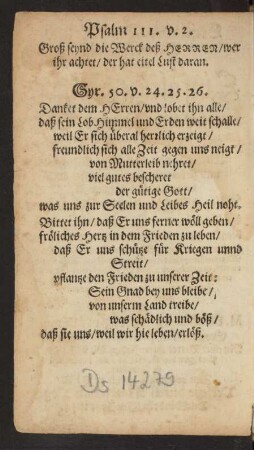 Psalm III. v. 2.
Groß seynd die Werck deß HERREN/wer
ihr achtet/ der hat eitel Lust daran.
Syr. 50. v. 24. 25. 26.
Danket dem HErren/vnd lobet ihn alle/
daß sein Lob Himmel und Erden weit schalle/
weil Er sich überal herrlich erzeigt/
freundlich sich alle Zeit gegen uns neigt/
von Mutterleib nehret/
viel gutes bescheret
der gütige Gott/
was uns zur Seelen und Leibes Heil noht.
Bittet ihn/ daß Er uns ferner wöll geben/
fröliches Hertz in dem Frieden zu leben/
daß Er uns schütze für Kriegen unnd
Streit/
pflantze den Frieden zu unserer Zeit:
Sein Gnad bey uns bleibe/
von unserm Land treibe/
was schädlich und böß/
daß sie uns/weil wir hie leben/erlöß.
Ds 14279